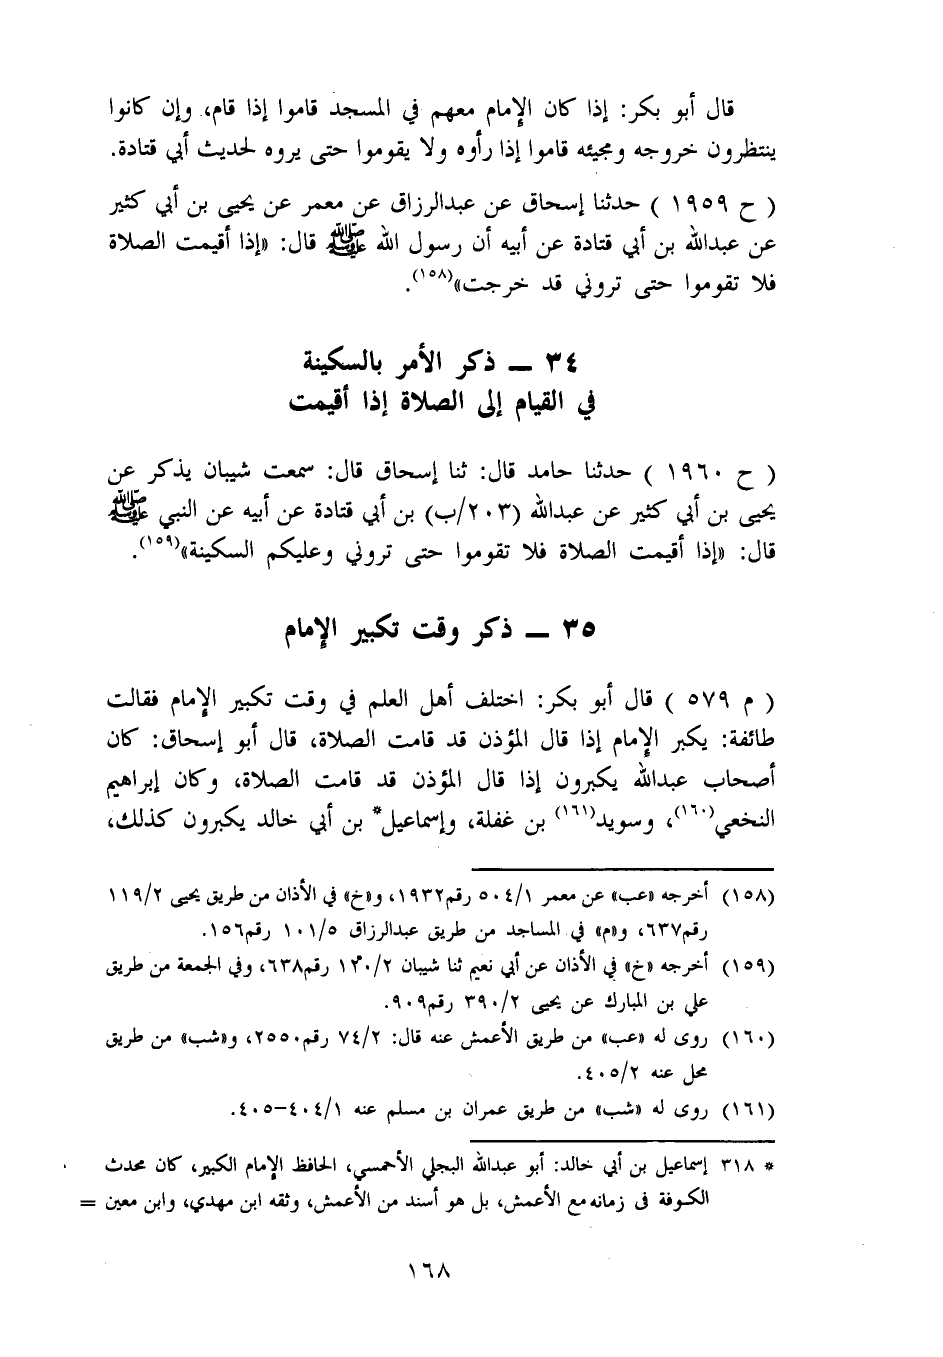 قال أبو بكر: إذا كان الإمام معهم في المسجد قاموا إذا قام، وإن كانوا
ينتظرون خروجه ومجيئه قاموا إذا رأوه ولا يقوموا حتى يروه لحديث أبي قتادة.
( ح ١٩٥٩ ) حدثنا إسحاق عن عبدالرزاق عن معمر عن يحيى بن أبي كثير
عن عبدالله بن أبي قتادة عن أبيه أن رسول الله ﷺ قال: «إذا أقيمت الصلاة
فلا تقوموا حتى تروني قد خرجت»(١٥٨).
٣٤ ــ ذكر الأمر بالسكينة
في القيام إلى الصلاة إذا أقيمت
( ح ١٩٦٠ ) حدثنا حامد قال: ثنا إسحاق قال: سمعت شيبان يذكر عن
يحيى بن أبي كثير عن عبدالله (٢٠٣/ب) بن أبي قتادة عن أبيه عن النبي ﷺ
قال: «إذا أقيمت الصلاة فلا تقوموا حتى تروني وعليكم السكينة»(١٥٩).
٣٥ ــ ذكر وقت تكبير الإمام
( م ٥٧٩ ) قال أبو بكر: اختلف أهل العلم في وقت تكبير الإمام فقالت
طائفة: يكبر الإمام إذا قال المؤذن قد قامت الصلاة، قال أبو إسحاق: كان
أصحاب عبدالله يكبرون إذا قال المؤذن قد قامت الصلاة، وكان إبراهيم
النخعي(١٦٠)، وسويد(١٦١) بن غفلة، وإسماعيل* بن أبي خالد يكبرون كذلك،
(١٥٨) أخرجه «عب» عن معمر ٥٠٤/١ رقم١٩٣٢، و«خ» في الأذان من طريق يحيى ١١٩/٢
رقم٦٣٧، و«م» في المساجد من طريق عبدالرزاق ١٠١/٥ رقم١٥٦.
(١٥٩) أخرجه «خ» في الأذان عن أبي نعيم ثنا شيبان ١٢٠/٢ رقم٦٣٨، وفي الجمعة من طريق
علي بن المبارك عن يحيى ٣٩٠/٢ رقم٩٠٩.
(١٦٠) روى له «عب» من طريق الأعمش عنه قال: ٧٤/٢ رقم٢٥٥٠، و«شب» من طريق
محل عنه ٤٠٥/٢.
(١٦١) روى له «شب» من طريق عمران بن مسلم عنه ٤٠٤/١–٤٠٥.
* ٣١٨ إسماعيل بن أبي خالد: أبو عبدالله البجلي الأحمسي، الحافظ الإمام الكبير، كان محدث
الكوفة فى زمانه مع الأعمش، بل هو أسند من الأعمش، وثقه ابن مهدي، وابن معين =
١٦٨